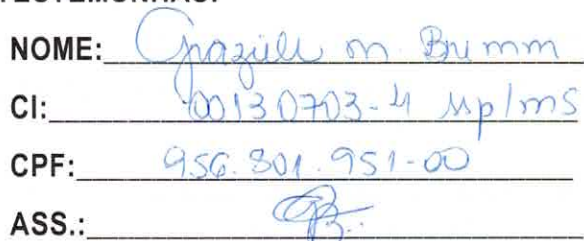 TESTEMUNHAS:
NOME: Grazieli m. Brumm
CI: 00130703-4 ssp/ms
CPF: 956.801.951-00
ASS.: